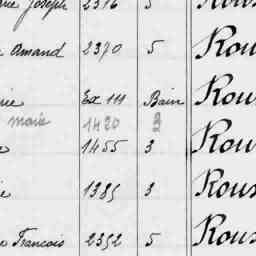 Joseph 2316 5 Rous
Amand 2370 5 Rou
rie Ex 111 Bain Rou
marie 1420 3
e 1455 3 Rou
ie 1385 3 Rous
Francois 2352 5 Rous